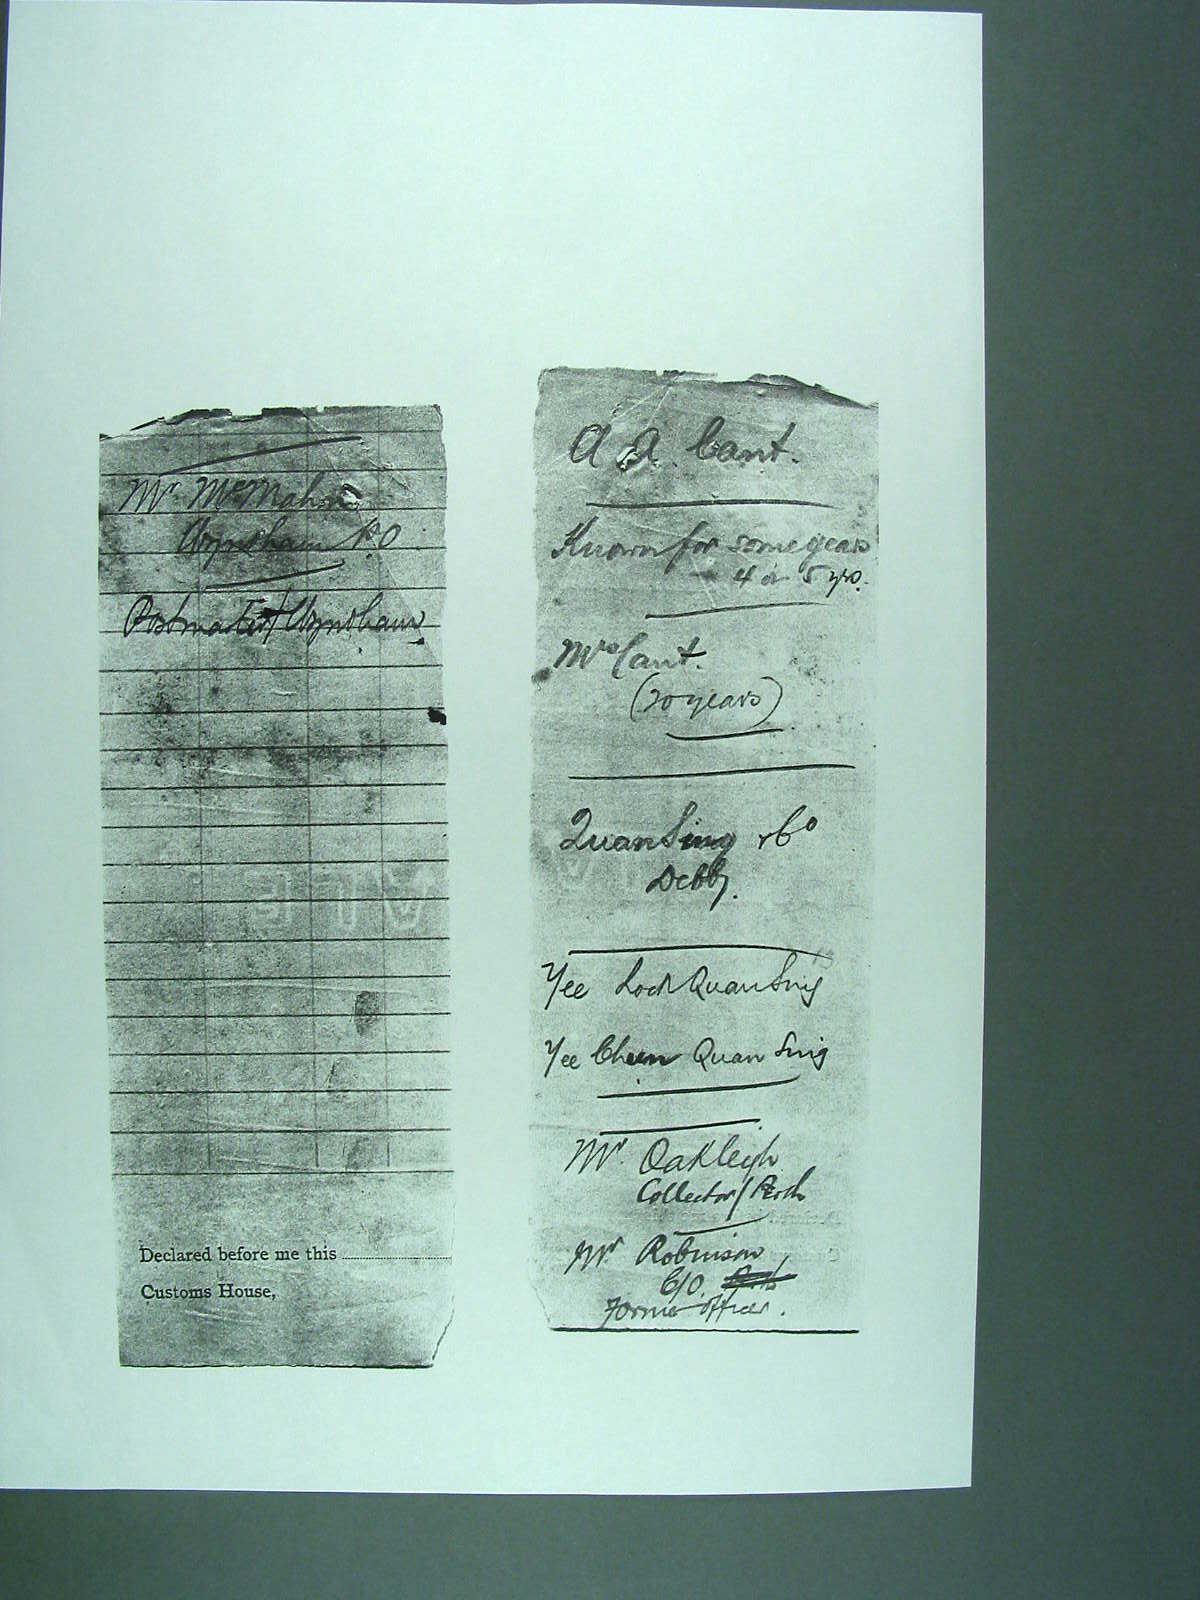 Mr McMahon
Wyndham P.O
Postmaster/Wyndham
Declared before me this
Customs House,
A A. Cant.
Known for some years
4 or 5 yrs.
Mrs Cant.
(20 years)
Quan Sing & Co
Derby.
Yee Lock Quan Sing
Yee Cheen Quan Sing
Mr. Oakleigh
Collector/Perth
Mr Robinson
C/O.
Former officer.